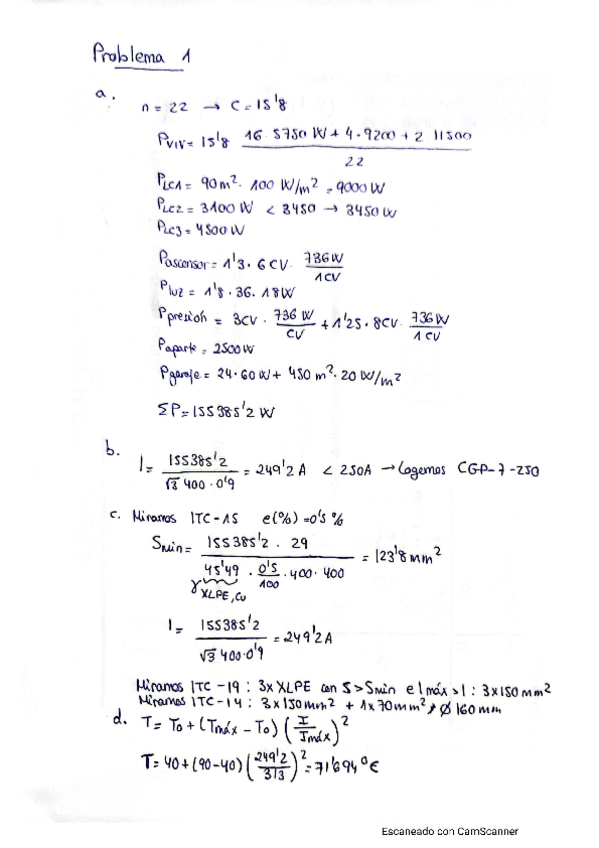 Problema 1
a.
n = 22 → C = 15'8
PVIV = 15'8 16·5750 W + 4·9200 + 2 11500
22
PLC1 = 90m²· 100 W/m² = 9000 W
PLC2 = 3100 W < 3450 → 3450 W
PLC3 = 4500 W
Pascensor = 1'3 · 6 CV · 736 W / 1 CV
Pluz = 1'8 · 36 · 18 W
Ppresión = 3CV · 736 W / CV + 1'25 · 8CV · 736 W / 1 CV
Paparte = 2500 W
Pgaraje = 24·60 W + 450 m²· 20 W/m²
ΣP = 155385'2 W
b.
I = 155385'2 / √3 400 · 0'9 = 249'2 A < 250A → Cogemos CGP-7-250
c. Miramos ITC-15 e(%) = 0'5 %
Smin = 155385'2 · 29 / 45'49 · 0'5/100 · 400 · 400 = 123'8 mm²
γXLPE, Cu
I = 155385'2 / √3 400·0'9 = 249'2 A
Miramos ITC-19 : 3x XLPE con S > Smin e Imáx > I : 3x150 mm²
Miramos ITC-14 : 3x150mm² + 1x70mm², Ø 160 mm
d. T = T0 + (Tmáx - T0) (I / Imáx)²
T = 40 + (90-40) (249'2 / 313)² = 71'694 ºC
Escaneado con CamScanner